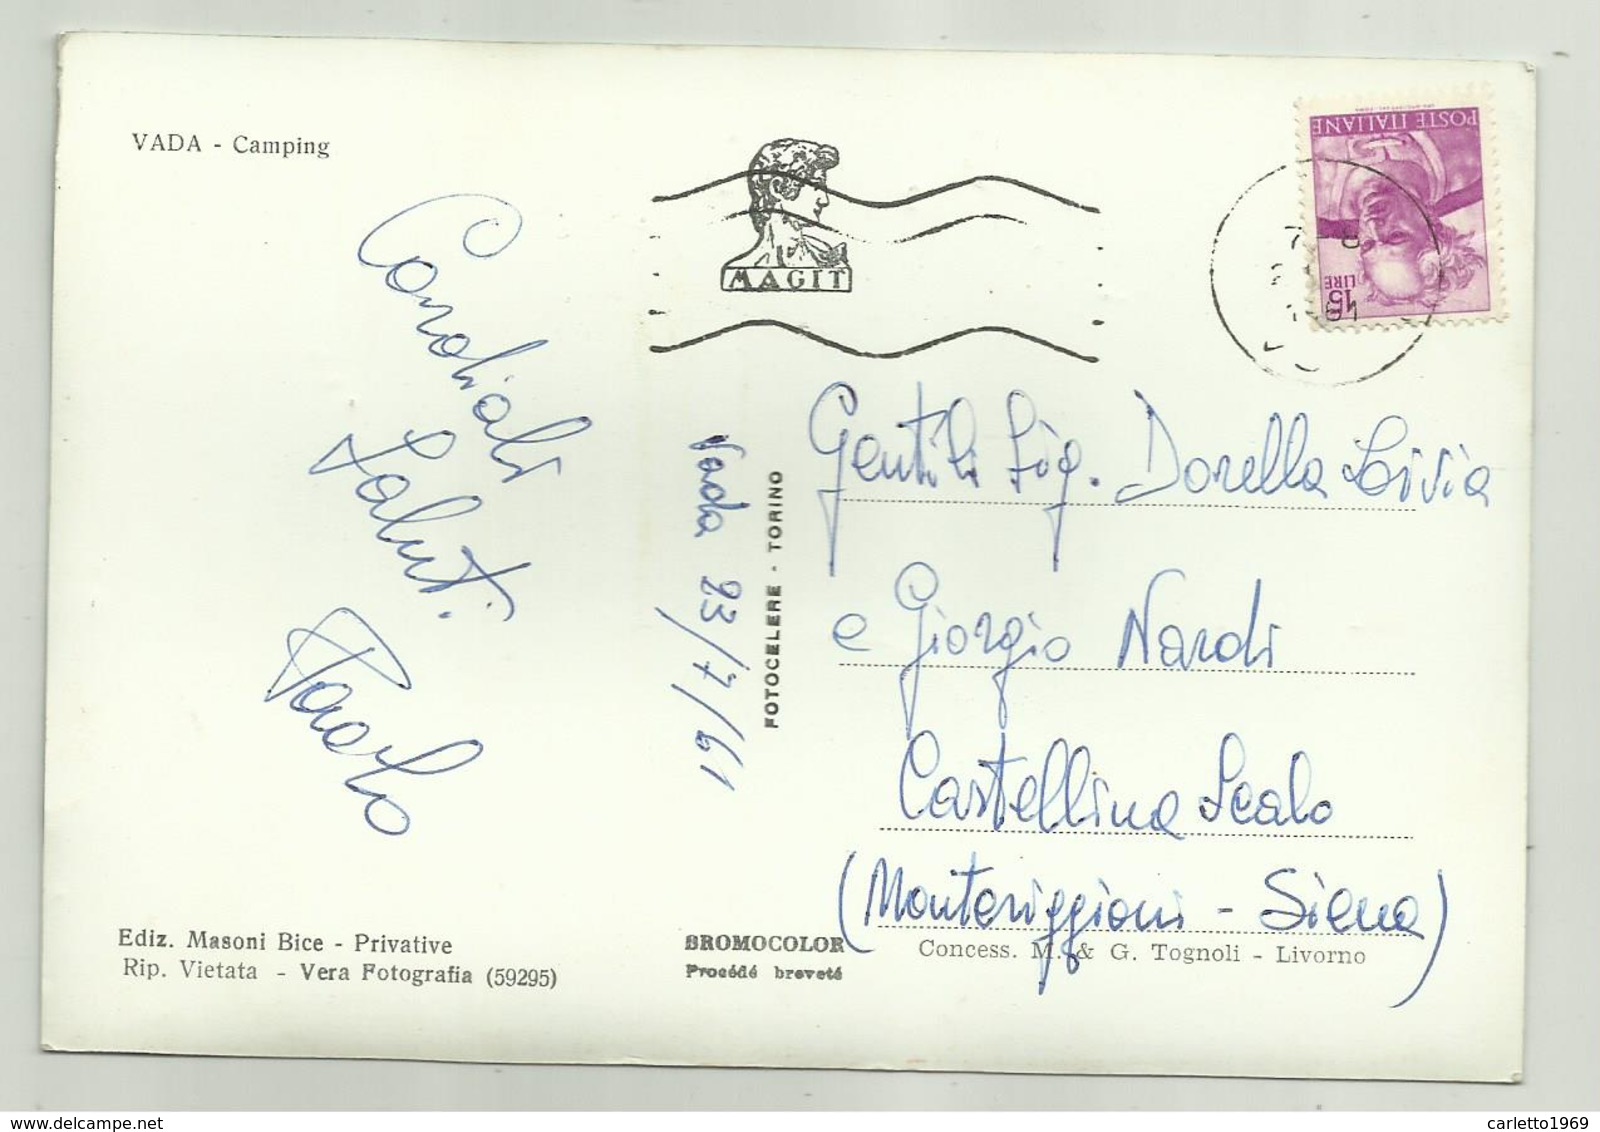 VADA - Camping
Cordiali
Saluti.
Paolo
Vada 23/7/61
FOTOCELERE - TORINO
MAGIT
POSTE ITALIANE
LIRE
15
Gentili Sig. Dorella Livia
e Giorgio Nardi
Castellina Scalo
(Monteriggioni - Siena)
Ediz. Masoni Bice - Privative
Rip. Vietata - Vera Fotografia (59295)
BROMOCOLOR
Procédé breveté
Concess. M. & G. Tognoli - Livorno
www.delcampe.net
carletto1969